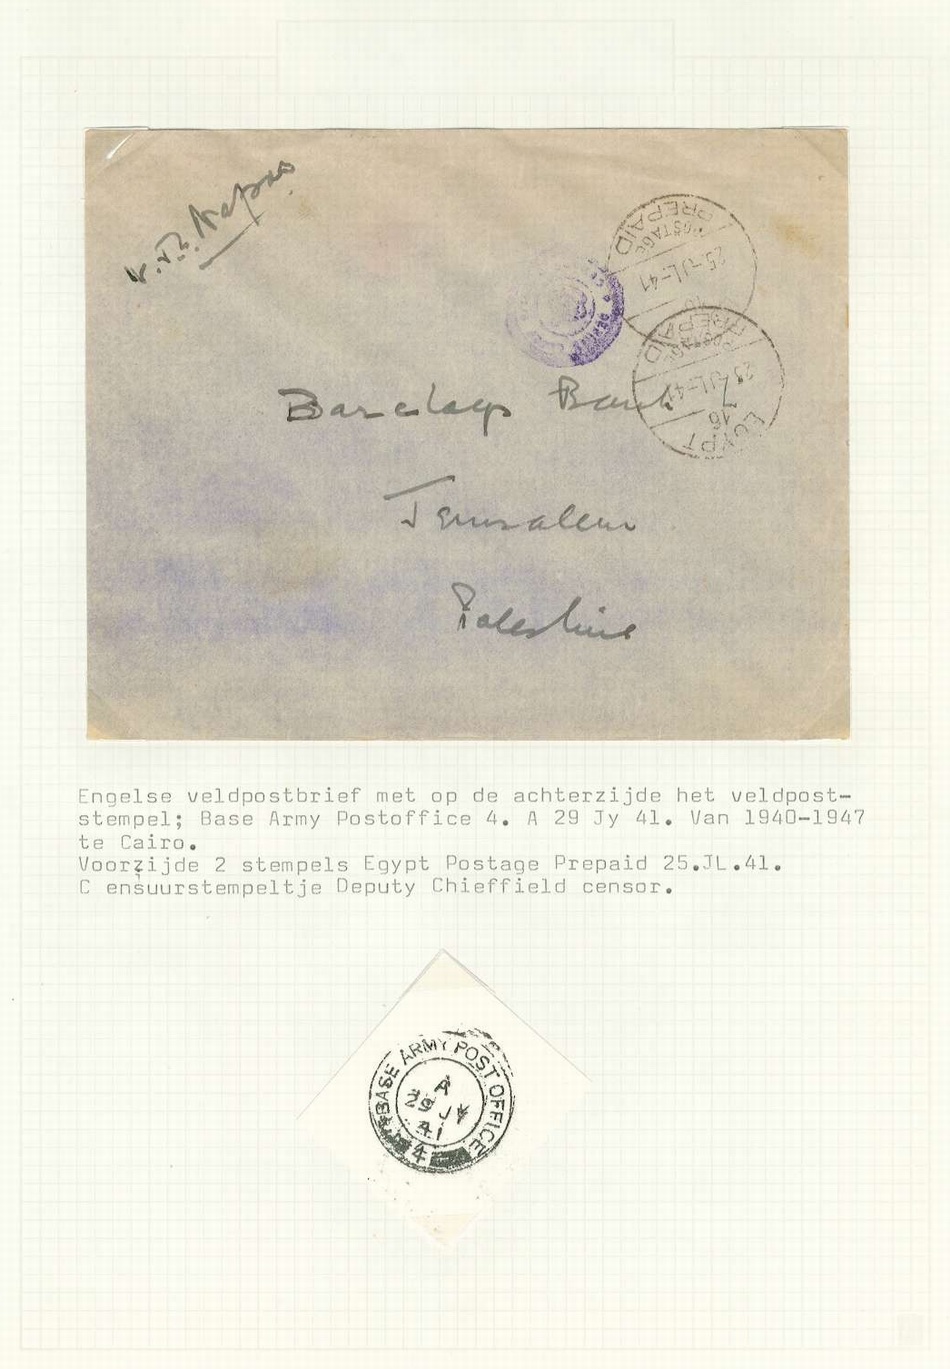 PREPAID
POSTAGE
25-JL-41
PREPAID
POSTAGE
25-JL-41
16
EGYPT
Barclays Bank
Jerusalem
Palestine
Engelse veldpostbrief met op de achterzijde het veldpost-
stempel; Base Army Postoffice 4. A 29 Jy 41. Van 1940-1947
te Cairo.
Voorzijde 2 stempels Egypt Postage Prepaid 25.JL.41.
C ensuurstempeltje Deputy Chieffield censor.
BASE ARMY POST OFFICE
A
29 JY
41
4